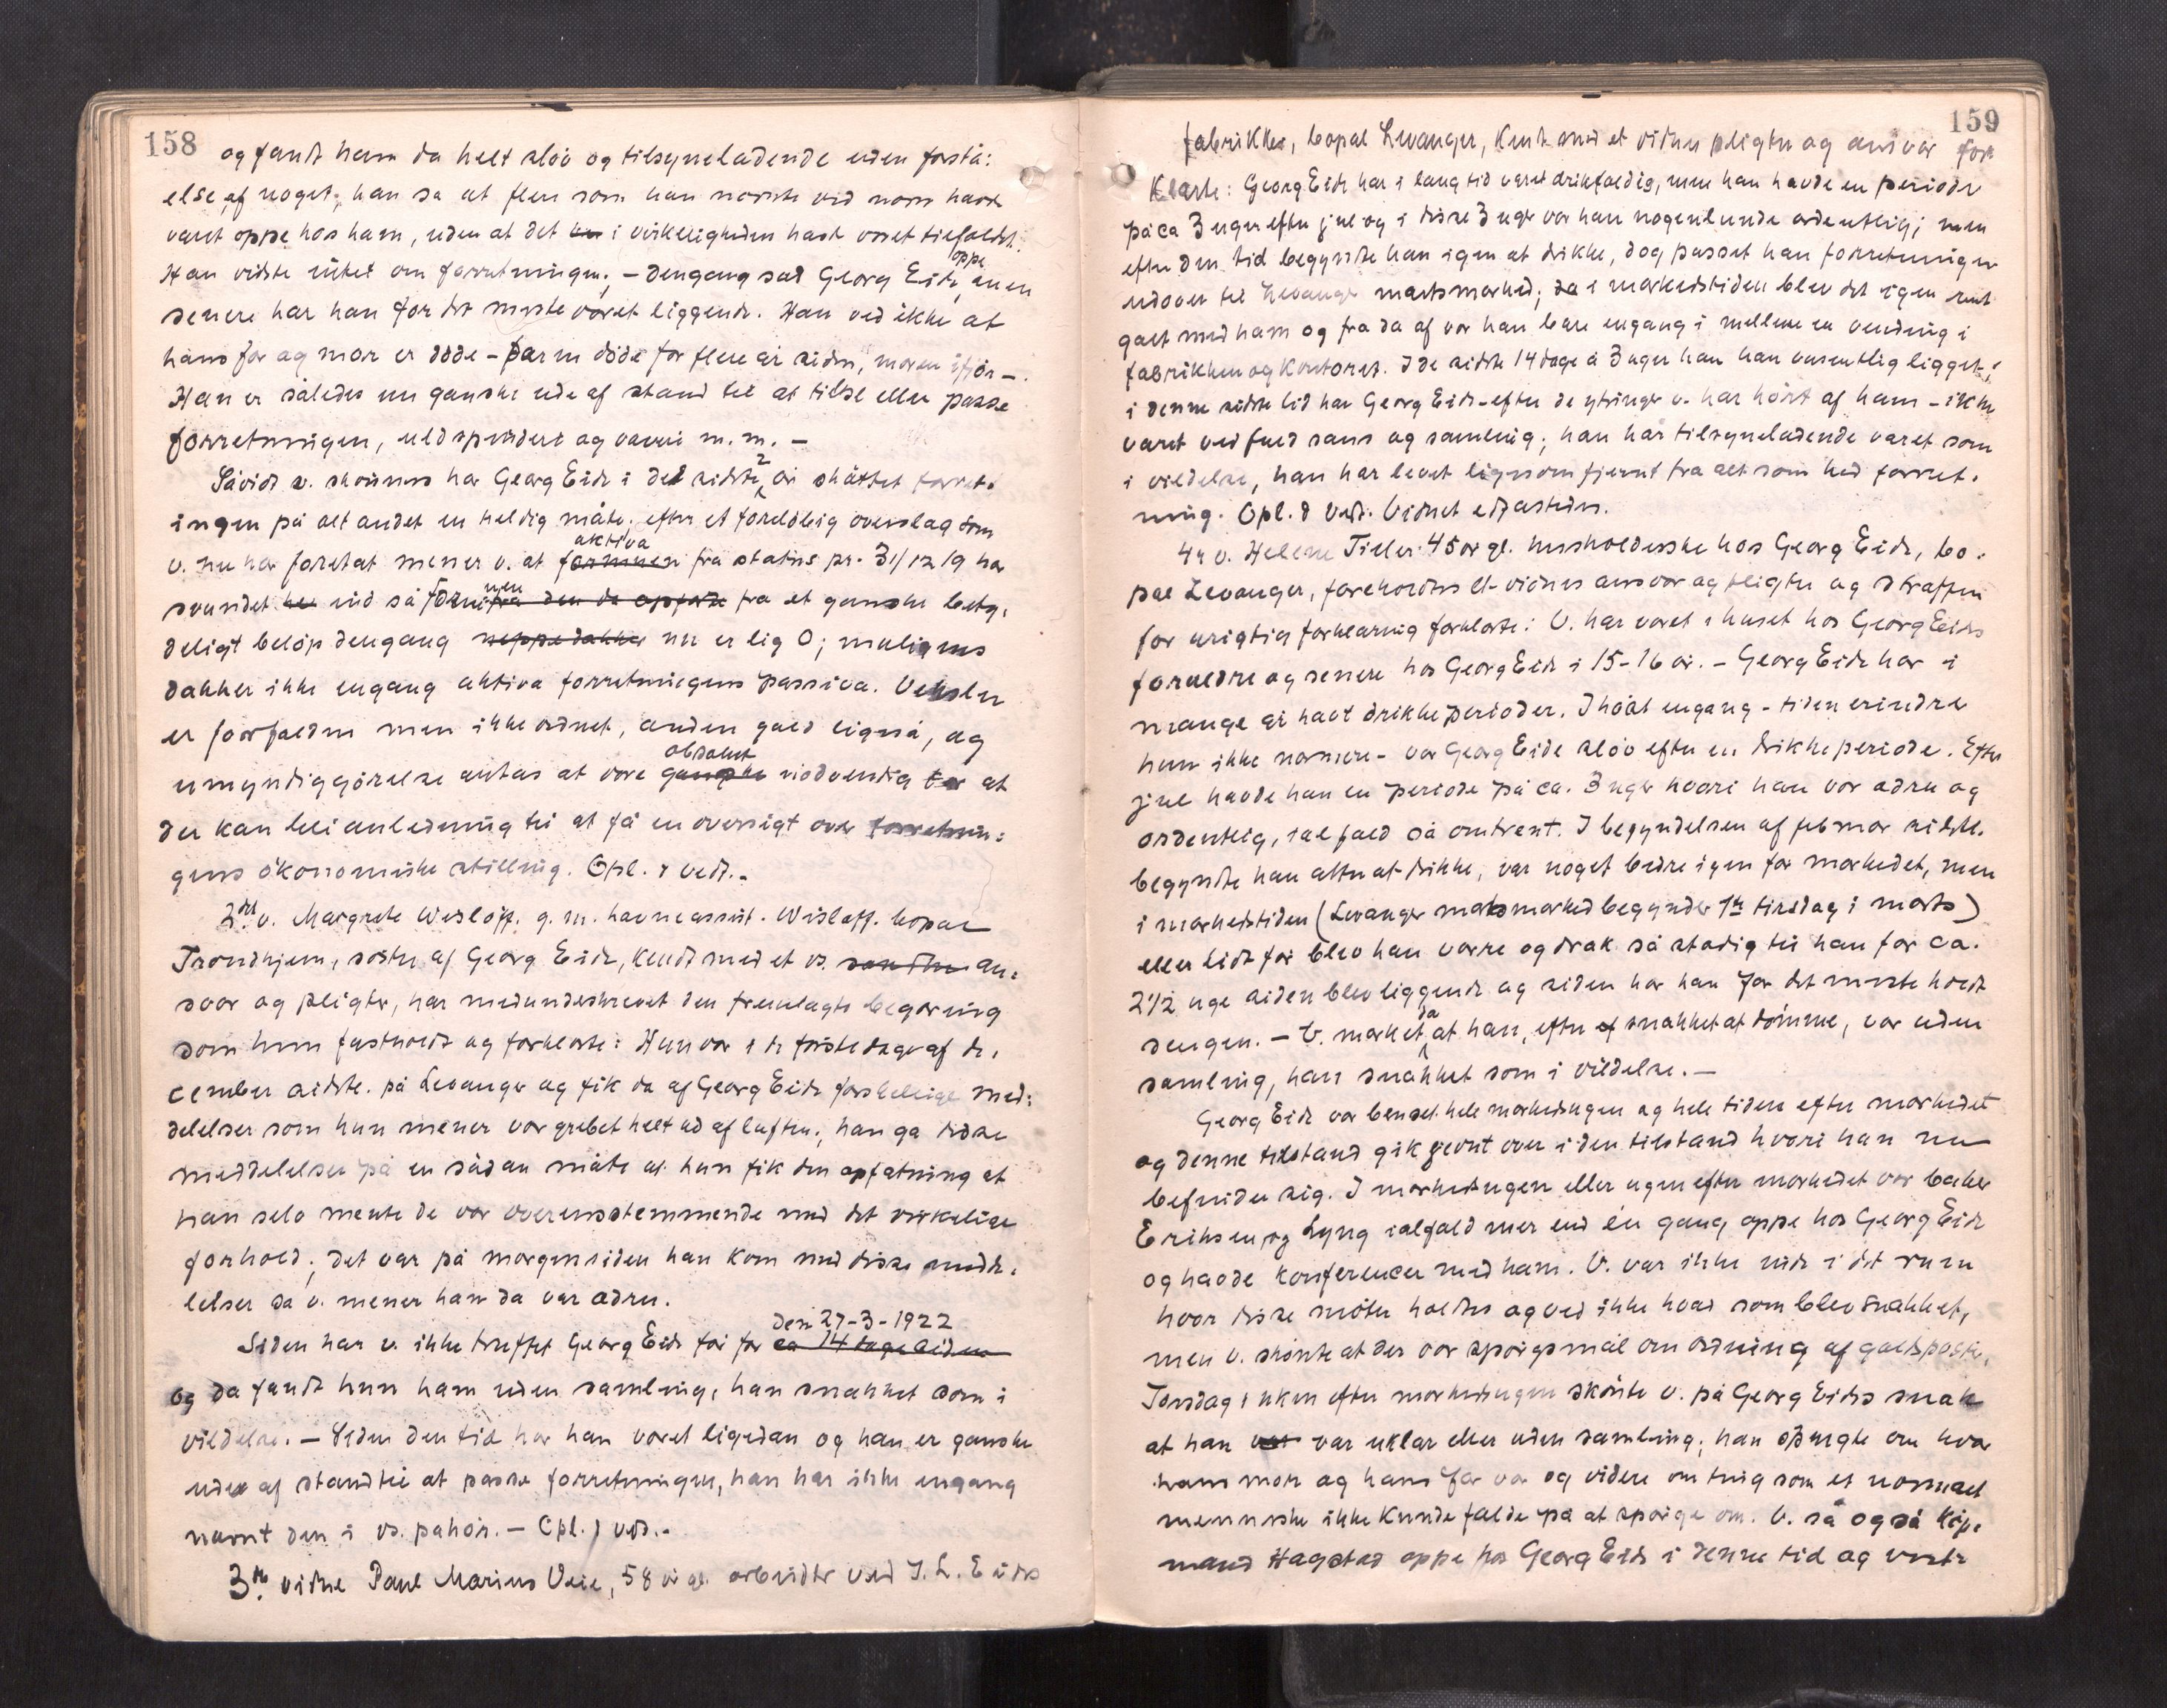 158
og fandt ham da helt sløv og tilsyneladende uden forstå=
else af noget; han sa at flere som han nævnte ved navn havde
været oppe hos ham, uden at det i virkeligheden hadde været tilfældet.
Han vidste intet om forretningen; – dengang sad Georg Eide oppe, men
senere har han for det meste været liggende. Han ved ikke at
hans far og mor er døde – faren døde for flere år siden, moren ifjor –.
Han er således nu ganske ude af stand til at tilse eller passe
forretningen, uldspinderi og væveri m.m. –
Såvidt v. skønner har Georg Eide i de sidste 2 år skøttet forret-
ingen på alt andet en heldig måte; efter et foreløbig overslag som
v. nu har foretat mener v. at formuen aktiva fra status pr. 31/12 19 har
svundet ind så formuen fra den da opførte fra et ganske bety-
deligt beløp dengang neppe dækker nu er lig 0; muligens
dækker ikke engang aktiva forretningens passiva. Veksler
er forfaldne men ikke ordnet, anden gæld ligeså, og
umyndiggørelse antas at være ganske absolut nødvendig for at
der kan bli anledning til at få en oversigt over forretnin=
gens økonomiske stilling. Opl. & vedt. –
2det v. Margrete Wisløff. g. m. havneassist. Wisløff. bopæl
Trondhjem, søster af Georg Eide, kendt med et vs. an=
svar og pligter, har medunderskrevet den fremlagte begæring
som hun fastholdt og forklarte: Hun var i de første dage af de-
cember sidstl. på Levanger og fik da af Georg Eide forskellige med=
delelser som hun mener var grebet helt ud af luften; han ga disse
meddelelser på en sådan måte at hun fik den opfatning at
han selv mente de var overensstemmende med det virkelige
forhold; det var på morgensiden han kom med disse medde-
lelser så v. mener han da var ædru.
Siden har v. ikke truffet Georg Eide før for ca 14 dage siden den 27-3-1922
og da fandt hun ham uden samling, han snakket som i
vildelse. – Siden den tid har han været ligedan og han er ganske
ude af stand til at passe forretningen, han har ikke engang
nævnt den i vs. påhør. – Opl. & vedt. –
3de vidne Paul Marius Veie, 58 år gl. arbeider ved J. L. Eides
159
fabrikker, bopæl Levanger, kendt med et vidnes pligter og ansvar for-
klarte: Georg Eide har i lang tid været drikfældig, men han havde en periode
på ca 3 uger efter jul og i disse 3 uger var han nogenlunde ordentlig; men
efter den tid begyndte han igen at drikke, dog passet han forretningen
udover til Levanger martsmarked; i markedstiden blev det igen rent
galt med ham og fra da af var han bare engang i mellem en vending i
fabrikken og kontoret. I de sidste 14 dage à 3 uger har han væsentlig ligget;
i denne sidste tid har Georg Eide – efter de ytringer v. har hørt af ham – ikke
været ved fuld sans og samling; han har tilsyneladende været som
i vildelse, han har levet ligesom fjernt fra alt som hed forret-
ning. Opl. & vedt. Vidnet edfæstedes.
4de v. Helene Tiller 45 år gl. husholderske hos Georg Eide, bo-
pæl Levanger, foreholdtes et vidnes ansvar og pligter og straffen
for urigtig forklaring forklarte: V. har været i huset hos Georg Eides
forældre og senere hos Georg Eide i 15-16 år. – Georg Eide har i
mange år havt drikkeperioder. I høst engang – tiden erindrer
hun ikke nærmere – var Georg Eide sløv efter en drikkeperiode. Efter
jul havde han en periode på ca. 3 uger hvori han var ædru og
ordentlig, ialfald så omtrent. I begyndelsen af februar sidstl.
begyndte han atter at drikke, var noget bedre igen før markedet, men
i markedstiden (Levanger martsmarked begynder 1ste tirsdag i marts)
eller lidt før blev han værre og drak så stadig til han for ca.
2 1/2 uge siden blev liggende og siden har han for det meste holdt
sengen. – V. mærket da at han, efter snakket at dømme, var uden
samling, han snakket som i vildelse. –
Georg Eide var beruset hele markedsugen og hele tiden efter markedet
og denne tilstand gik jevnt over i den tilstand hvori han nu
befinder sig. I markedsugen eller ugen efter markedet var baker
Eriksen og Lyng ialfald mer end én gang oppe hos Georg Eide
og havde konferencer med ham. V. var ikke inde i det rum
hvor disse møter holdtes og ved ikke hvad som blev snakket,
men v. skønte at der var spørgsmål om ordning af gældsposter.
Torsdag i uken efter markedsugen skønte v. på Georg Eides snak
at han var uklar eller uden samling; han spurgte om hvor
hans mor og hans far var og videre om ting som et normalt
menneske ikke kunde falde på at spørge om. V. så også køp-
mand Hagstad oppe hos Georg Eide i denne tid og